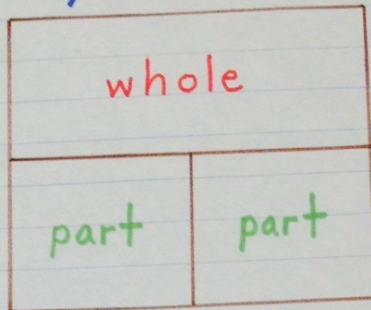 whole
part part